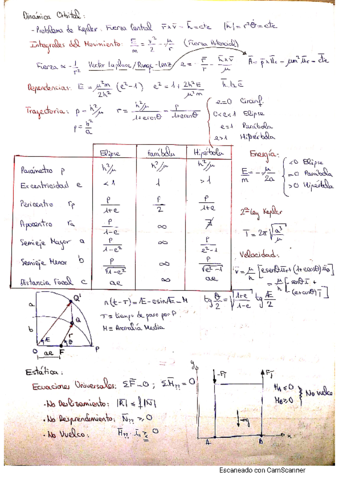 Dinámica Orbital:
- Problema de Kepler: Fuerza Central r̄×v̄ = h̄ = cte |h̄| = r²θ̇ = cte
Integrales del Movimiento: E/m = v²/2 - μ/r (Fuerza
Fuerza ~ 1/r² Vector Laplace/Runge-Lenz
Dependencias: E = μ²m/2h² (e²-1) e² = 1 + 2h²E/μ²m h̄ ⊥ ē
Trayectoria: p = h²/μ r = h²/μ/1+e cosθ = p/1+e cosθ
e=0 Circunf.
0<e<1 Elipse
e=1 Parábola
e>1 Hipérbola
Elipse Parábola Hipérbola
Parámetro p h²/μ h²/μ h²/μ
Excentricidad e <1 1 >1
Pericentro rp p/1+e p/2 p/1+e
Apocentro ra p/1-e ∞ ∄
Semieje Mayor a p/1-e² ∞ p/e²-1
Semieje Menor b p/√1-e² ∞ p/√e²-1
Distancia Focal c ae ∞ ae
Energía:
E/m = -μ/2a
<0 Elipse
=0 Parábola
>0 Hipérbola
2ª Ley Kepler
T = 2π√a³/μ
Velocidad:
n(t-τ) = Æ - e sinÆ = M
τ = tiempo de paso por P
M = Anomalía Media
tg θ/2 = √1+e/1-e tg Æ/2
a
b
Q'
Q
O
F
P
ae
Estática:
Ecuaciones Universales: ΣF̄ = 0; ΣH̄ = 0
- No Deslizamiento: |R̄| ≤ f|N̄|
- No Desprendimiento: N̄ ≥ 0
- No Vuelco:
A
B
x
y
No vuelco
Escaneado con CamScanner